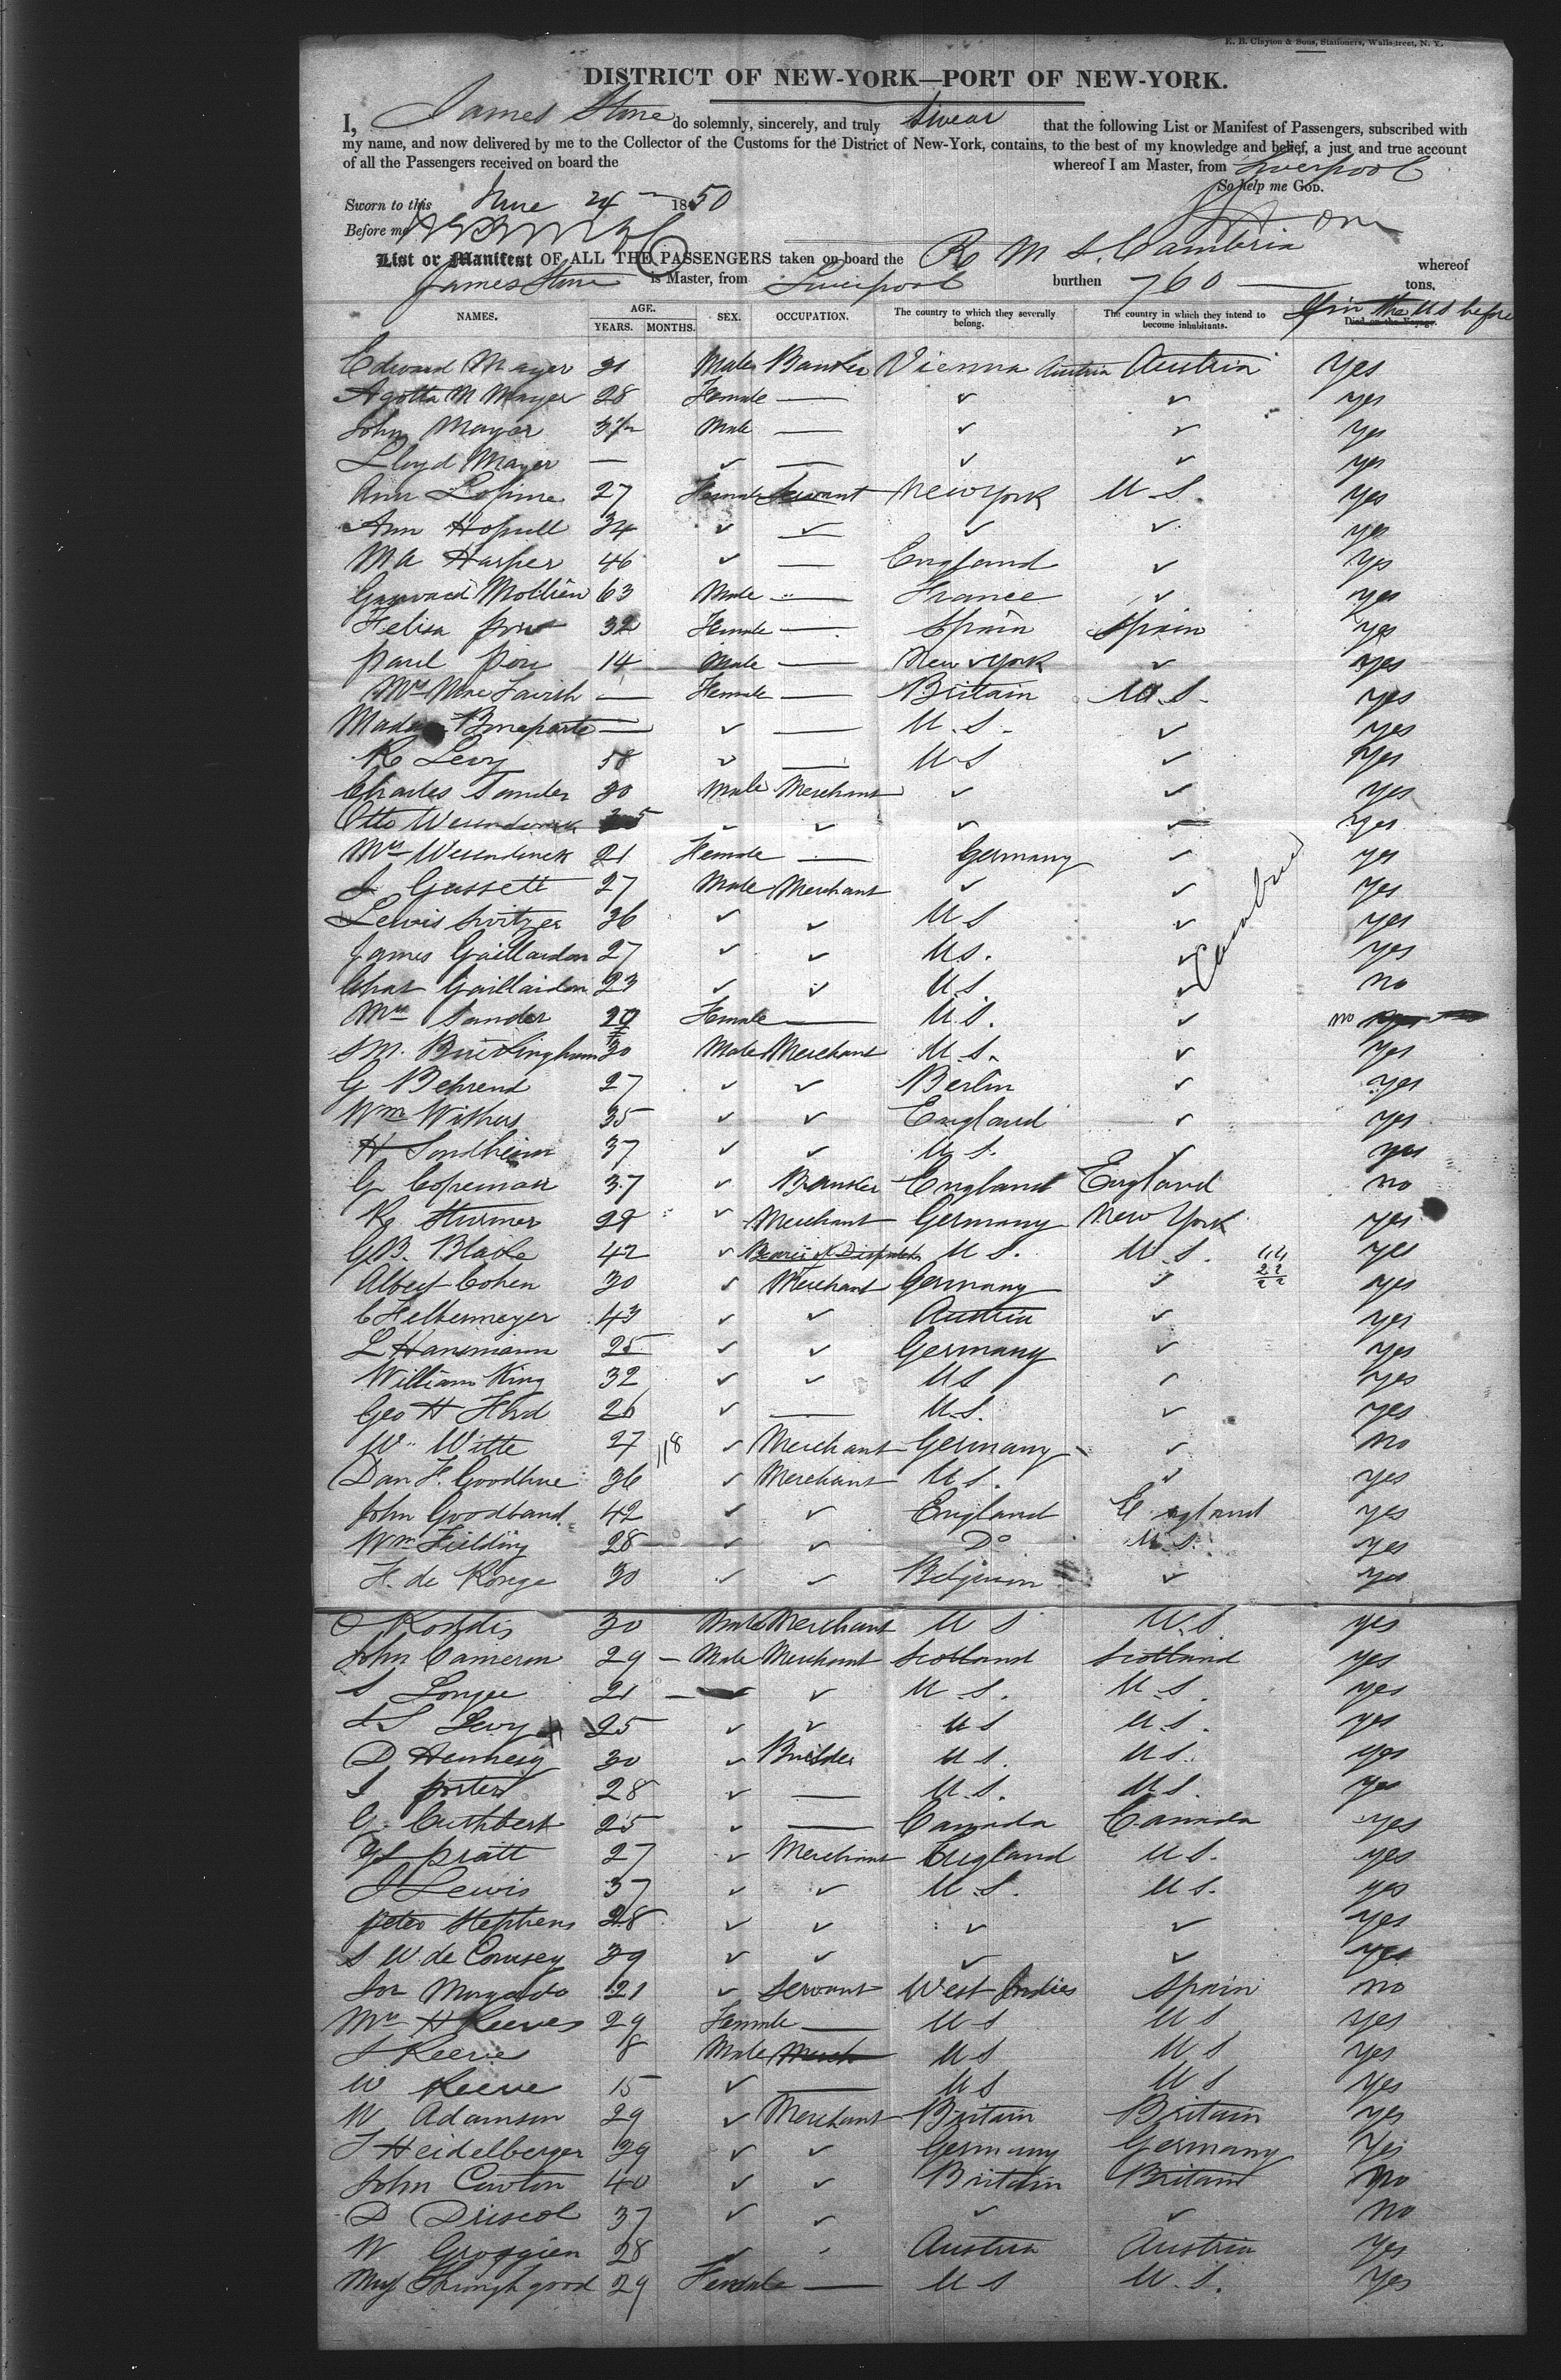 E. B. Clayton & Sons, Stationers, Wall-street, N. Y.
DISTRICT OF NEW-YORK—PORT OF NEW-YORK.
I, James Stone do solemnly, sincerely, and truly swear that the following List or Manifest of Passengers, subscribed with
my name, and now delivered by me to the Collector of the Customs for the District of New-York, contains, to the best of my knowledge and belief, a just and true account
of all the Passengers received on board the whereof I am Master, from Liverpool
So help me GOD.
Sworn to this June 24 1850
Before me
List or Manifest OF ALL THE PASSENGERS taken on board the R M S. Cambria whereof
James Stone is Master, from Liverpool burthen 760 tons.
NAMES. AGE. YEARS. MONTHS. SEX. OCCUPATION. The country to which they severally belong. The country in which they intend to become inhabitants. Died on the Voyage. If in the US before
Edward Mayer 31 Male Banker Vienna Austria Austria Yes
Agotta M Mayer 28 Female — ✓ ✓ yes
John Mayer 3½ Male — ✓ ✓ yes
Lloyd Mayer — ✓ — ✓ ✓ yes
Ann 27 Female Servant New York U.S. yes
Ann 34 ✓ ✓ ✓ ✓ yes
M A Harper 46 ✓ — England ✓ yes
63 Male — France ✓ yes
Felisa 32 Female — Spain Spain yes
Paul 14 Male — New York ✓ yes
Mrs Mac Tavish — Female — Britain U.S. yes
Madam Bonaparte — ✓ — U.S. ✓ yes
R Levy 58 ✓ — US ✓ yes
Charles Sander 30 Male Merchant ✓ ✓ yes
Otto Wesendonck 35 ✓ ✓ ✓ ✓ yes
Mrs Wesendonck 21 Female — Germany ✓ yes
J Gassett 27 Male Merchant ✓ ✓ yes
Lewis 36 ✓ ✓ US ✓ yes
James Gaillardon 27 ✓ ✓ US. ✓ yes
Chas Gaillardon 23 ✓ ✓ U.S ✓ no
Mrs Sander 29 Female — U.S. ✓ no
S M. Burlingham 30 Male Merchant U.S. ✓ yes
G Behrend 27 ✓ ✓ Berlin ✓ yes
Wm Withers 35 ✓ ✓ England ✓ yes
H Sondheim 37 ✓ ✓ U.S. ✓ yes
G Copeman 37 ✓ Banker England England no
R Sturmer 29 ✓ Merchant Germany New York yes
G B. Blake 42 ✓ Bearer of Dispatches U S. U.S. yes
Albert Cohen 30 ✓ Merchant Germany ✓ yes
C Feltermeyer 43 ✓ ✓ Austria ✓ yes
L Hansmann 25 ✓ ✓ Germany ✓ yes
William King 32 ✓ ✓ US ✓ yes
Geo H Ford 26 ✓ — U.S. ✓ yes
W. Witte 27 118 ✓ Merchant Germany ✓ no
Dan F. Goodhue 36 ✓ Merchant U.S. ✓ yes
John Goodband 42 ✓ ✓ England England yes
Wm Fielding 28 ✓ ✓ Do U.S. yes
F. de Konge 30 ✓ ✓ Belgium ✓ yes
30 Male Merchant U S U.S yes
John Cameron 29 — Male Merchant Scotland Scotland yes
S Longe 21 — ✓ ✓ U.S. U.S. yes
L S Levy 25 ✓ ✓ U S U.S. yes
D Hennesy 30 ✓ Builder U.S. U.S. yes
S Porter 28 ✓ — U.S. U.S. yes
G. Cuthbert 25 ✓ — Canada Canada yes
Pratt 27 ✓ Merchant England U.S. yes
J Lewis 37 ✓ ✓ U.S. U.S. yes
Peter Stephens 28 ✓ ✓ ✓ ✓ yes
S W de Coursey 39 ✓ ✓ ✓ ✓ yes
Morgado 21 ✓ Servant West Indies Spain no
Mrs H Reeves 29 Female — U S U S yes
S Reeve 8 Male Merch U S U S yes
W Reeve 15 ✓ — U S U S yes
W Adamson 29 ✓ Merchant Britain Britain yes
J Heidelberger 39 ✓ ✓ Germany Germany yes
John Cawton 40 ✓ ✓ Britain Britain no
D Driscol 37 ✓ ✓ ✓ ✓ no
W 28 ✓ ✓ Austria Austria yes
29 Female — U S U.S. yes
Cambria